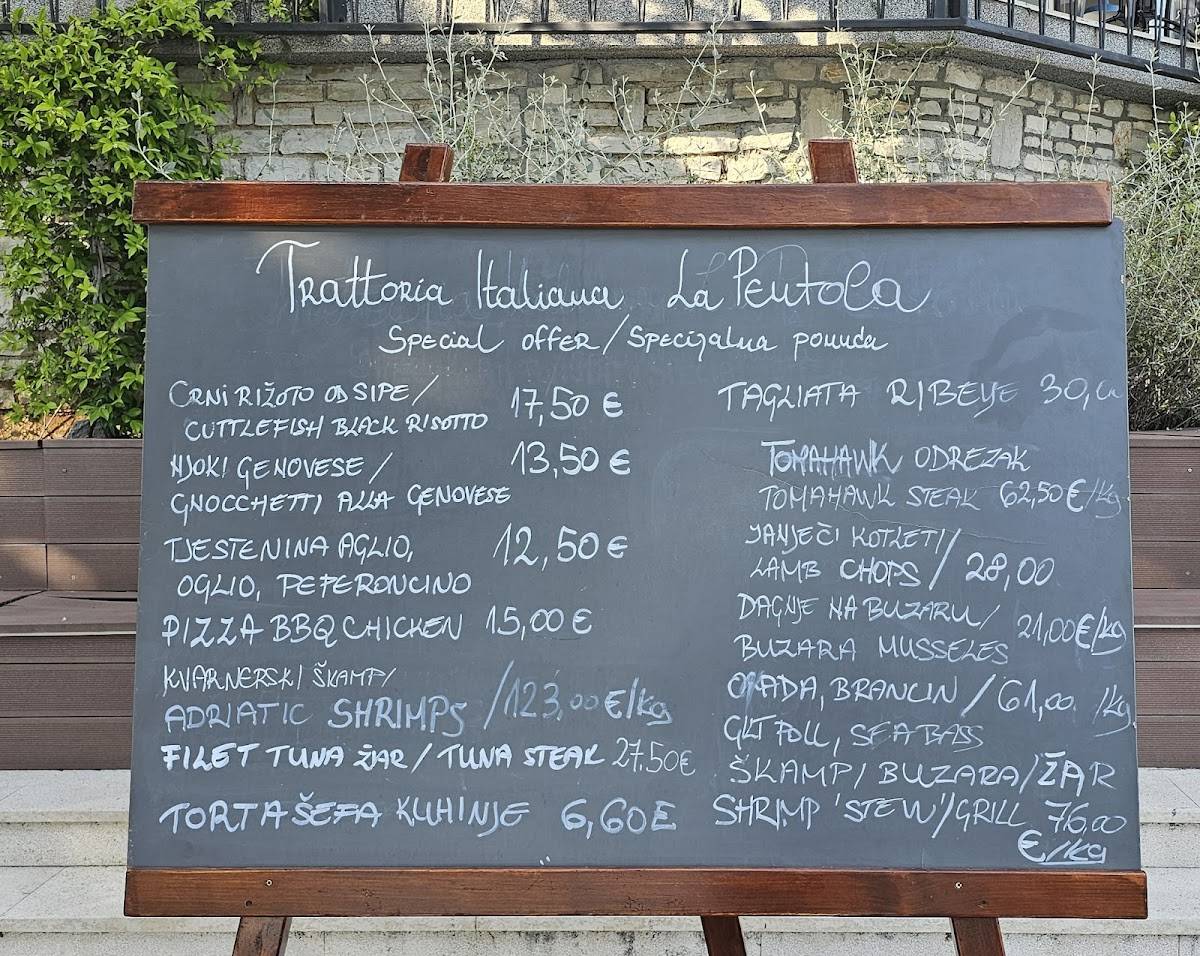 Trattoria Italiana La Pentola
Special offer/Specijalna ponuda
CRNI RIŽOTO OD SIPE/ 17,50 €
CUTTLEFISH BLACK RISOTTO
NJOKI GENOVESE/ 13,50 €
GNOCCHETTI ALLA GENOVESE
TJESTENINA AGLIO, 12,50 €
OGLIO, PEPERONCINO
PIZZA BBQ CHICKEN 15,00 €
KVARNERSKI ŠKAMPI/
ADRIATIC SHRIMPS /123,00 €/kg
FILET TUNA ŽAR/TUNA STEAK 27.50€
TORTA ŠEFA KUHINJE 6,60E
TAGLIATA RIBEYE 30,
TOMAHAWK ODREZAK
TOMAHAWK STEAK 62,50 €/kg
JANJEČI KOTLETI/
LAMB CHOPS/ 28,00
DAGNJE NA BUZARU/ 21,00€/kg
BUZARA MUSSELES
ORADA, BRANCIN/61,00 /kg
GILT POLL, SEA BASS
ŠKAMPI BUZARA/ŽAR
SHRIMP 'STEW'/GRILL 76,00
€/kg